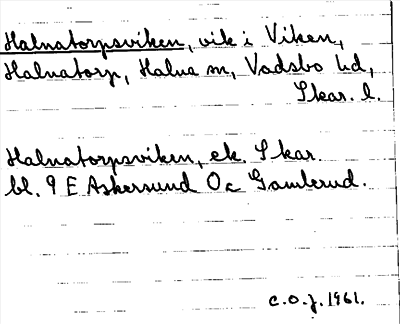 Halnatorpsviken, vik i Viken,
Halnatorp, Halna sn, Vadsbo hd,
Skar. l.
Halnatorpsviken, ek. Skar.
bl. 9 E Askersund Oc Gamlerud.
C.O.J. 1961.